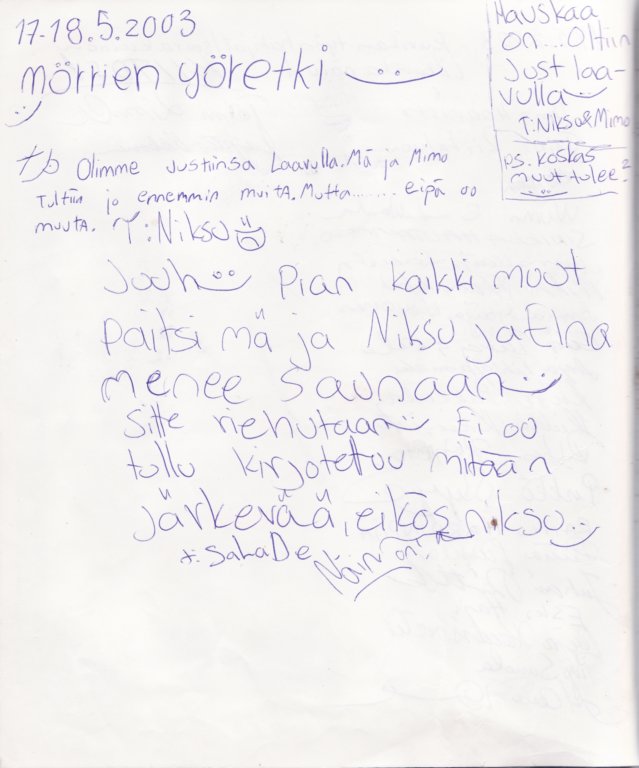 17-18.5.2003
mörrien yöretki
Hauskaa
on... Oltiin
Just laa-
vulla
T:Niksu&Mimo
ps. koskas
muut tulee?
Olimme justiinsa Laavulla. Mä ja Mimo
Tultiin jo ennemmin muita. Mutta........ eipä oo
muuta. T:Niksu
Jooh Pian kaikki muut
paitsi mä ja Niksu ja Elna
menee saunaan
Sitte riehutaan Ei oo
tullu kirjotettuu mitään
järkevää, eikös niksu
t: SaLaDe Näin on!